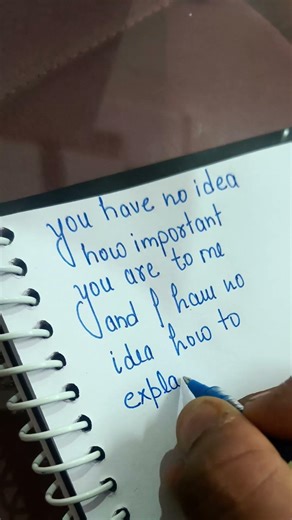 you have no idea
how important
you are to me
and I have no
idea how to
expla